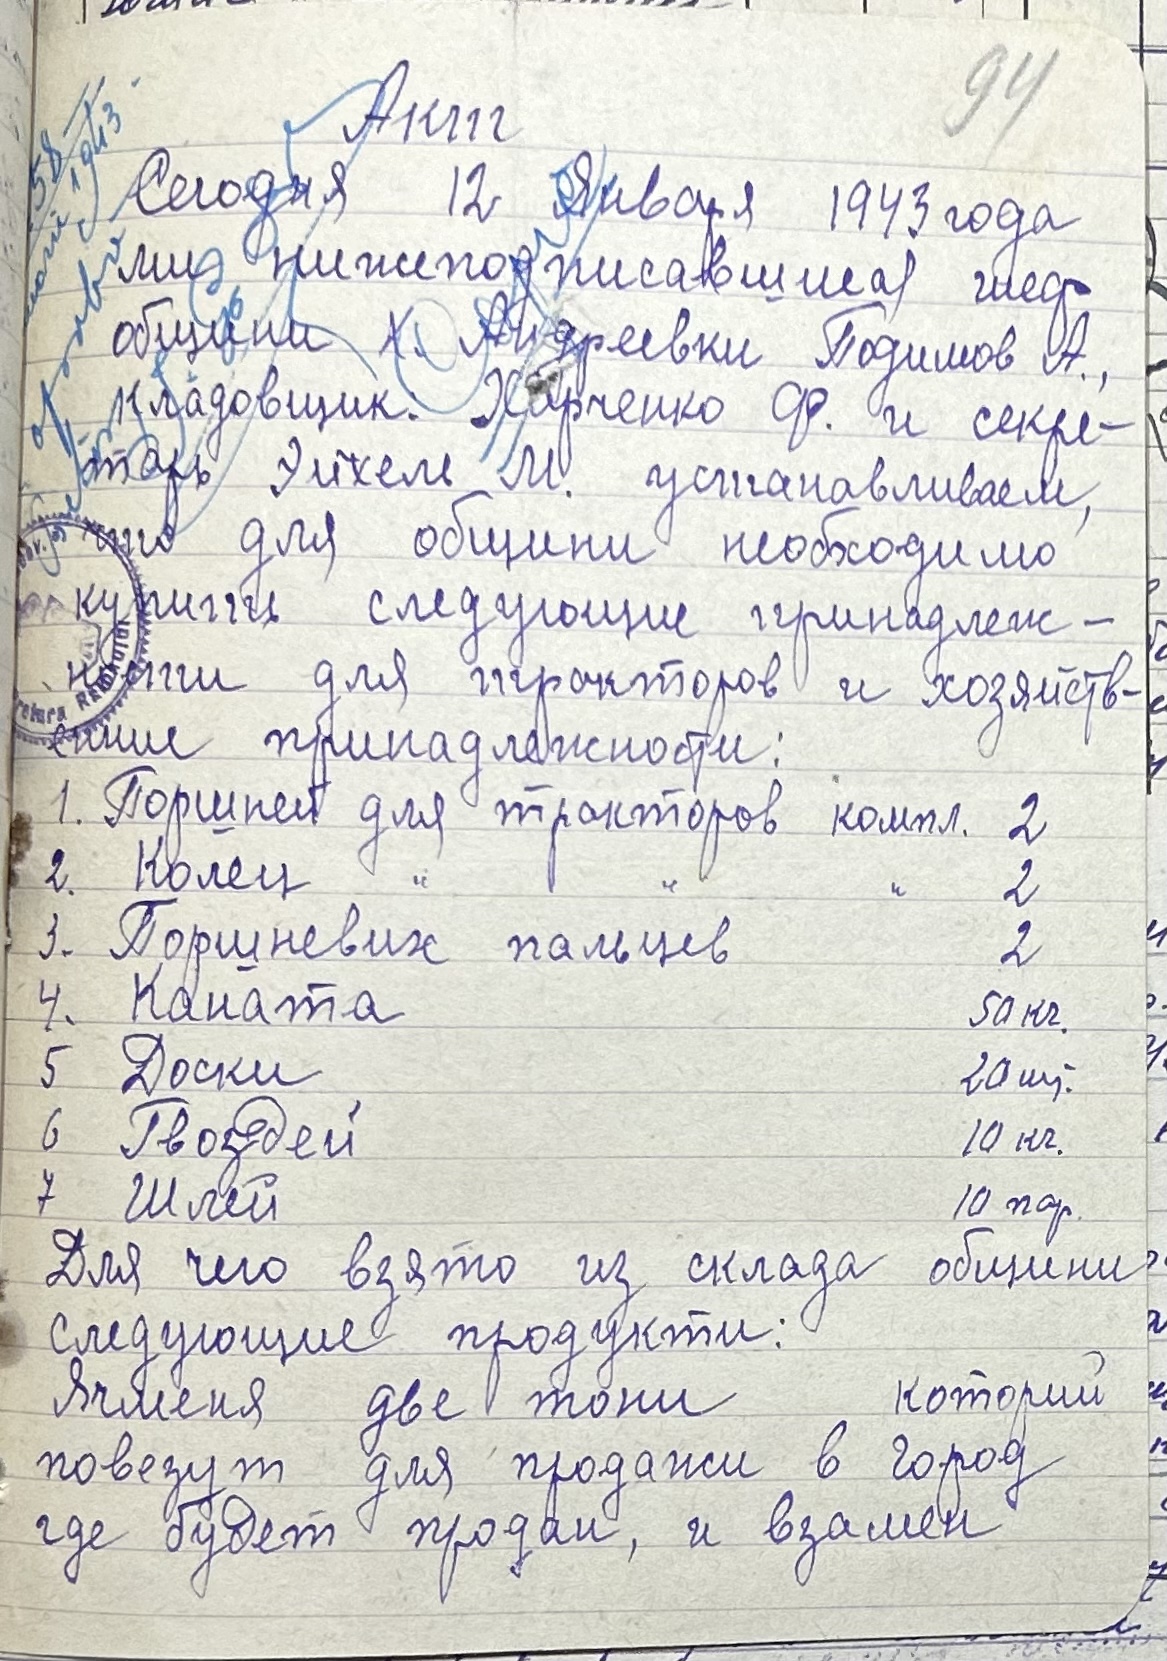 94
Акт
Сегодня 12 Января 1943 года
ми нижеподписавшися шеф
общини х. Андреевки Подимов А.,
кладовщик. Харченко Ф. и секре-
тарь Эйхель М. устанавливаем,
что для общини необходимо
купить следующие принадлеж-
ности для тракторов и хозяйств-
енние принадлежности:
1. Поршней для тракторов компл. 2
2. Колец " " " 2
3. Поршневих пальцев 2
4. Каната 50 кг.
5 Доски 20 шт.
6 Гвоздей 10 кг.
7 Шлей 10 пар.
Для чего взято из склада общини
следующие продукти:
Ячменя две тони который
повезут для продажи в город
где будет продан, и взамен